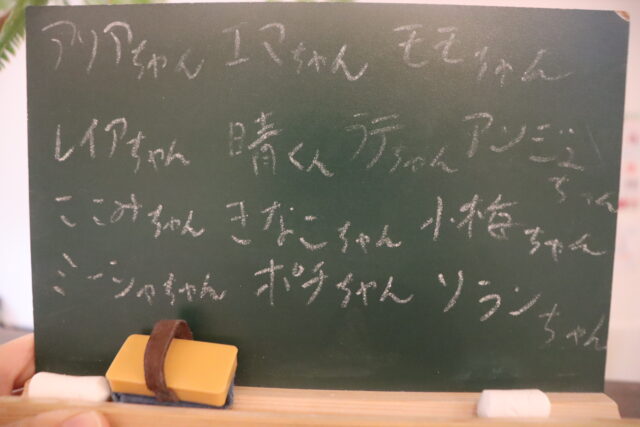 アリアちゃん エマちゃん モモちゃん
レイアちゃん 晴くん ラテちゃん アンジュちゃん
ここみちゃん きなこちゃん 小梅ちゃん
ミーシャちゃん ポチちゃん ソランちゃん